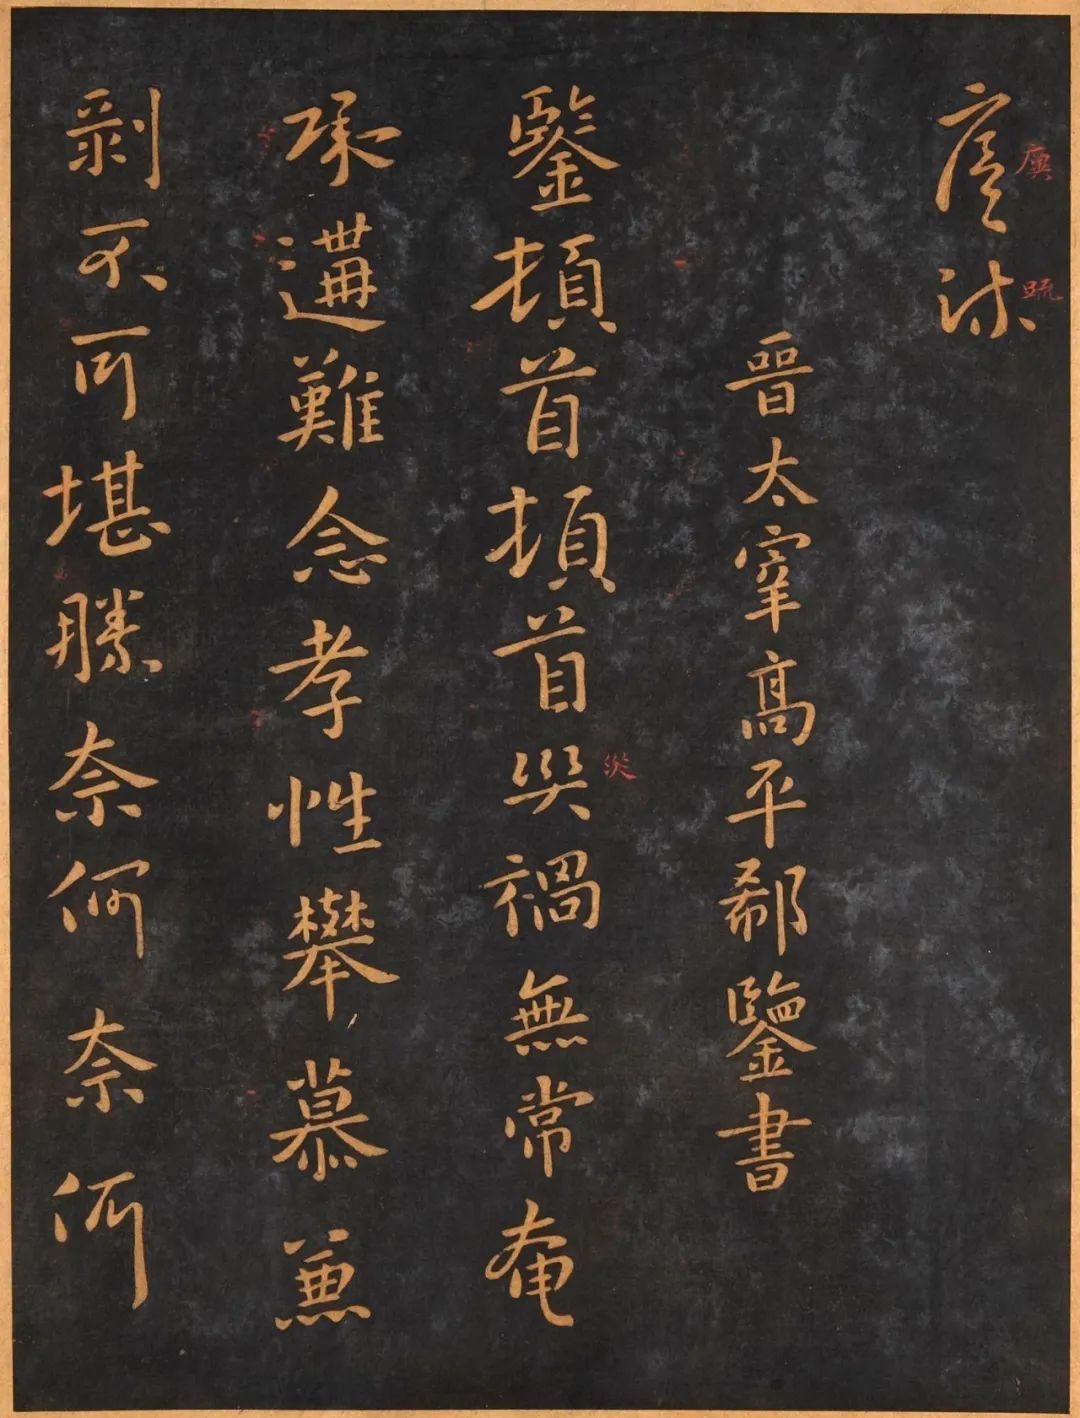 廙疏
廙
疏
晉太宰高平郗鑒書
鑒頓首頓首災禍無常奄
災
承遘難念孝性攀慕兼
剝不可堪勝奈何奈何